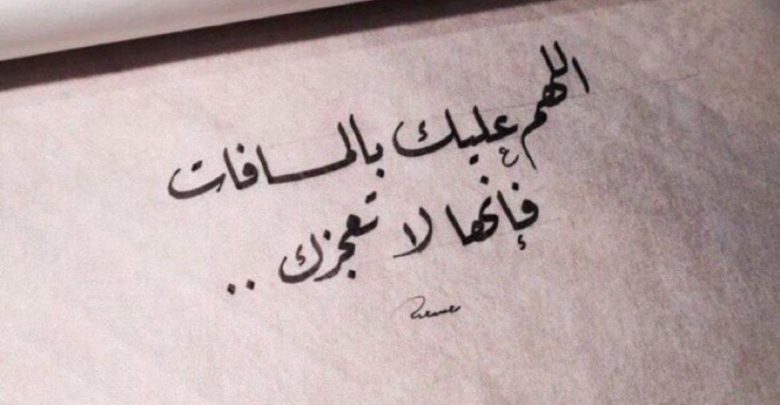 اللهم عليك بالمسافات
فإنها لا تعجزك ..